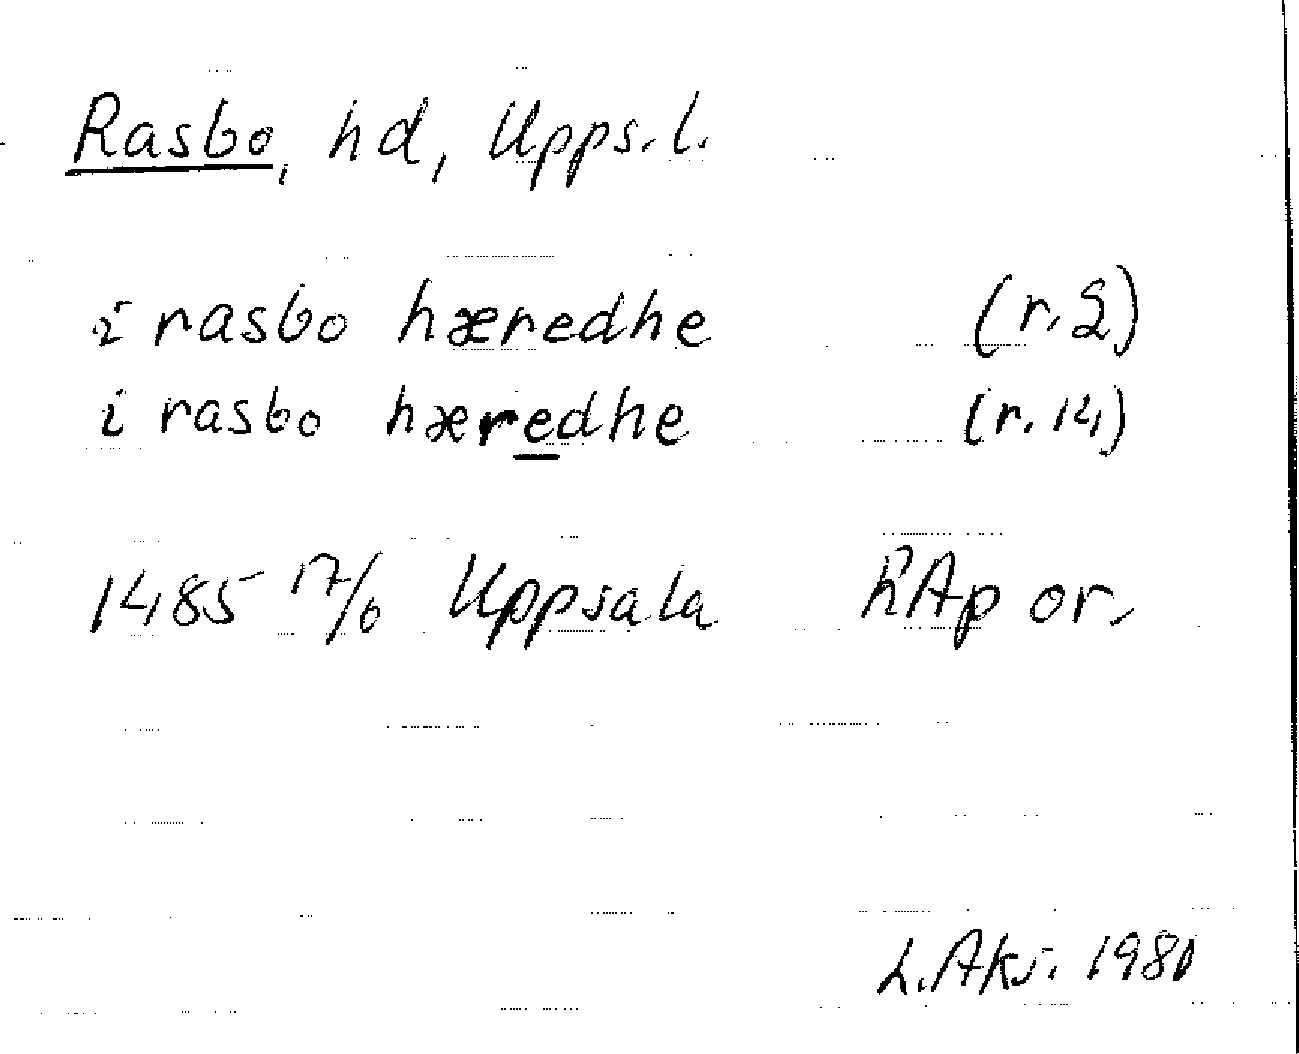 Rasbo, hd, Upps. l.
i rasbo hæredhe (r. 2)
i rasbo hæredhe (r. 14)
1485 17/6 Uppsala RAp or.
L. Aks. 1980